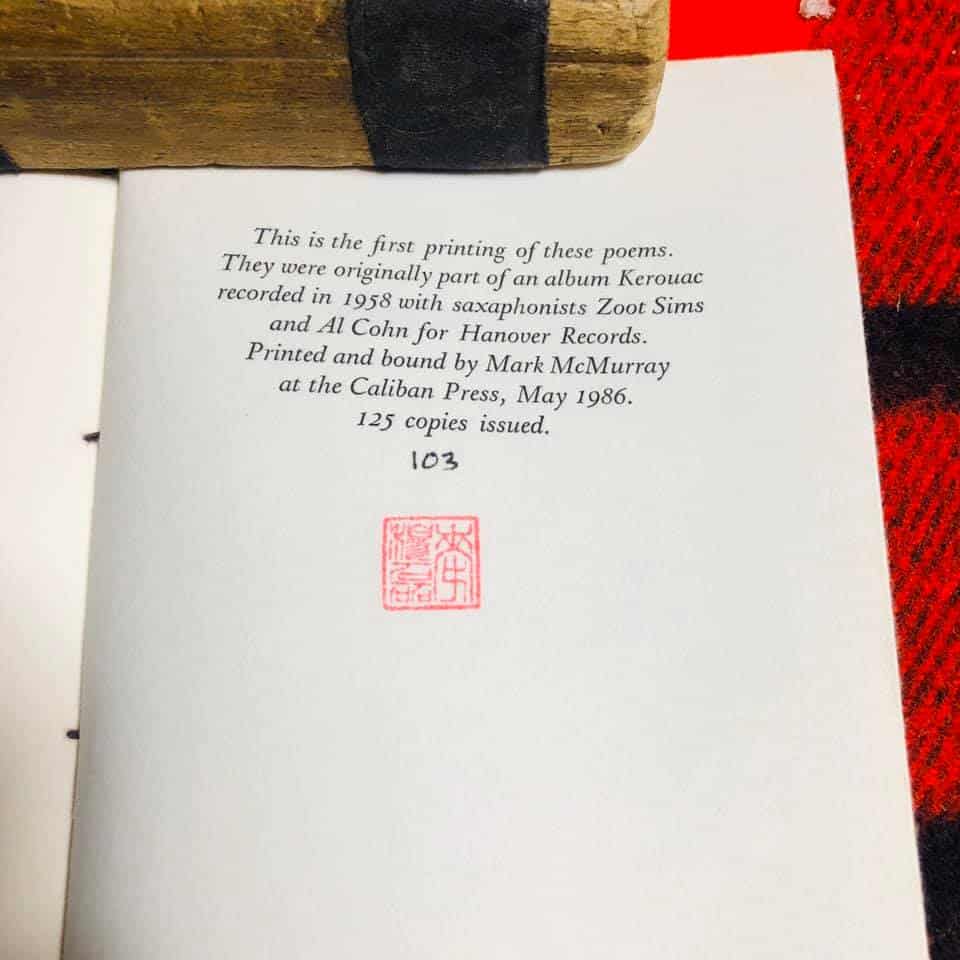 This is the first printing of these poems.
They were originally part of an album Kerouac
recorded in 1958 with saxaphonists Zoot Sims
and Al Cohn for Hanover Records.
Printed and bound by Mark McMurray
at the Caliban Press, May 1986.
125 copies issued.
103